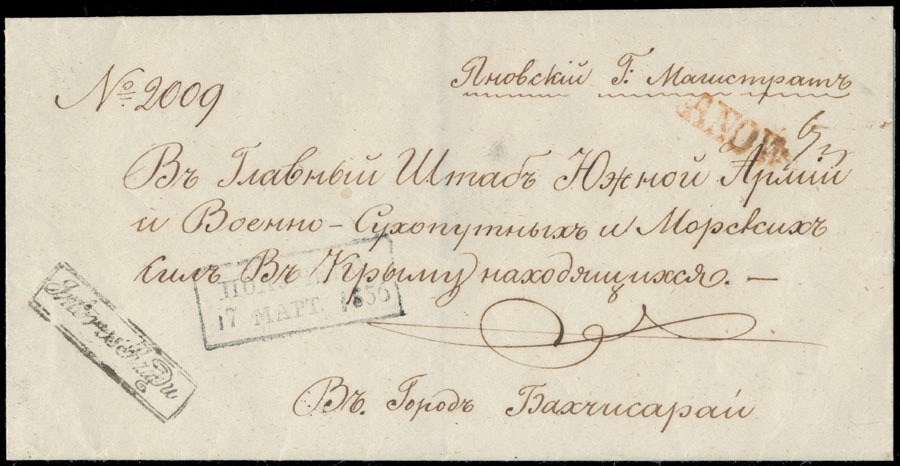 Яновскій Г: Магистратъ
№ 2009
ЯНОВЪ
Въ Главный Штабъ Южной Арміи
и Военно-Сухопутныхъ и Морскихъ
силъ Въ Крыму находящихся. —
17 МАРТ. 1856
Въ. Городъ Бахчисарай